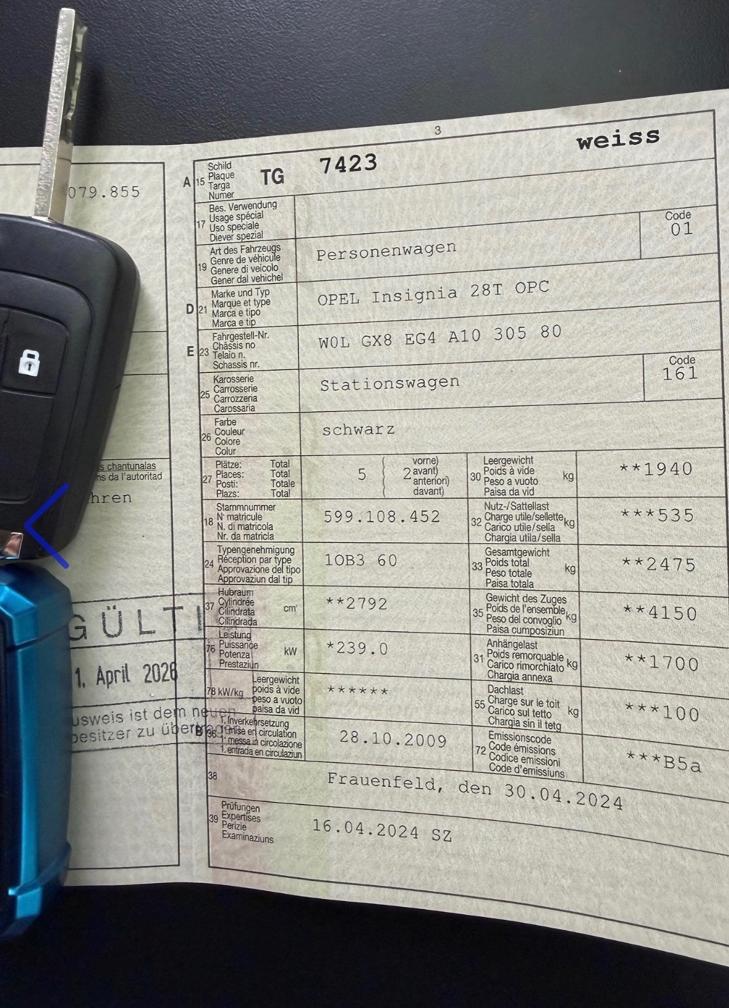 3
079.855
A 15 Schild
Plaque
Targa
Numer
TG 7423 weiss
17 Bes. Verwendung
Usage spécial
Uso speciale
Diever spezial
19 Art des Fahrzeugs
Genre de véhicule
Genere di veicolo
Gener dal vehichel
Personenwagen
Code
01
D 21 Marke und Typ
Marque et type
Marca e tipo
Marca e tip
OPEL Insignia 28T OPC
E 23 Fahrgestell-Nr.
Châssis no
Telaio n.
Schassis nr.
W0L GX8 EG4 A10 305 80
25 Karosserie
Carrosserie
Carrozzeria
Carossaria
Stationswagen
Code
161
26 Farbe
Couleur
Colore
Colur
schwarz
27 Plätze: Total
Places: Total
Posti: Totale
Plazs: Total
5 ( 2 vorne)
avant)
anteriori)
davant)
30 Leergewicht
Poids à vide
Peso a vuoto
Paisa da vid
kg
**1940
s chantunalas
ns da l'autoritad
hren
18 Stammnummer
N° matricule
N. di matricola
Nr. da matricla
599.108.452
32 Nutz-/Sattellast
Charge utile/sellette
Carico utile/sella
Chargia utila/sella
kg
***535
24 Typengenehmigung
Réception par type
Approvazione del tipo
Approvaziun dal tip
1OB3 60
33 Gesamtgewicht
Poids total
Peso totale
Paisa totala
kg
**2475
37 Hubraum
Cylindrée
Cilindrata
Cilindrada
cm³
**2792
35 Gewicht des Zuges
Poids de l'ensemble
Peso del convoglio
Paisa cumposiziun
kg
**4150
GÜLTI
76 Leistung
Puissance
Potenza
Prestaziun
kW
*239.0
31 Anhängelast
Poids remorquable
Carico rimorchiato
Chargia annexa
kg
**1700
1. April 2026
78 kW/kg Leergewicht
poids à vide
peso a vuoto
paisa da vid
******
55 Dachlast
Charge sur le toit
Carico sul tetto
Chargia sin il tetg
kg
***100
usweis ist dem neuen
besitzer zu
B 36 1. Inverkehrsetzung
1re mise en circulation
1a messa in circolazione
1. entrada en circulaziun
28.10.2009
72 Emissionscode
Code émissions
Codice emissioni
Code d'emissiuns
***B5a
38 Frauenfeld, den 30.04.2024
39 Prüfungen
Expertises
Perizie
Examinaziuns
16.04.2024 SZ